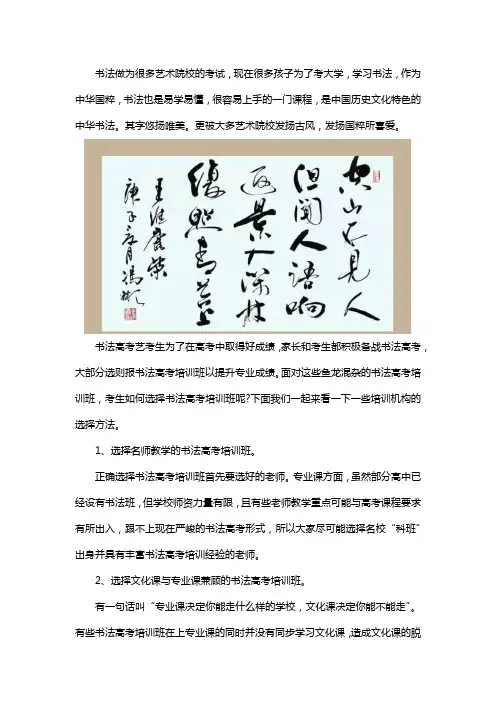 书法做为很多艺术院校的考试，现在很多孩子为了考大学，学习书法，作为
中华国粹，书法也是易学易懂，很容易上手的一门课程，是中国历史文化特色的
中华书法。其字悠扬唯美。更被大多艺术院校发扬古风，发扬国粹所喜爱。
空山不見人
但闻人语响
返景入深林
復照青苔上
王维鹿柴
庚子月冯
书法高考艺考生为了在高考中取得好成绩，家长和考生都积极备战书法高考，
大部分选则报书法高考培训班以提升专业成绩。面对这些鱼龙混杂的书法高考培
训班，考生如何选择书法高考培训班呢?下面我们一起来看一下一些培训机构的
选择方法。
1、选择名师教学的书法高考培训班。
正确选择书法高考培训班首先要选好的老师。专业课方面，虽然部分高中已
经设有书法班，但学校师资力量有限，且有些老师教学重点可能与高考课程要求
有所出入，跟不上现在严峻的书法高考形式，所以大家尽可能选择名校“科班”
出身并具有丰富书法高考培训经验的老师。
2、选择文化课与专业课兼顾的书法高考培训班。
有一句话叫“专业课决定你能走什么样的学校，文化课决定你能不能走”。
有些书法高考培训班在上专业课的同时并没有同步学习文化课，造成文化课的脱